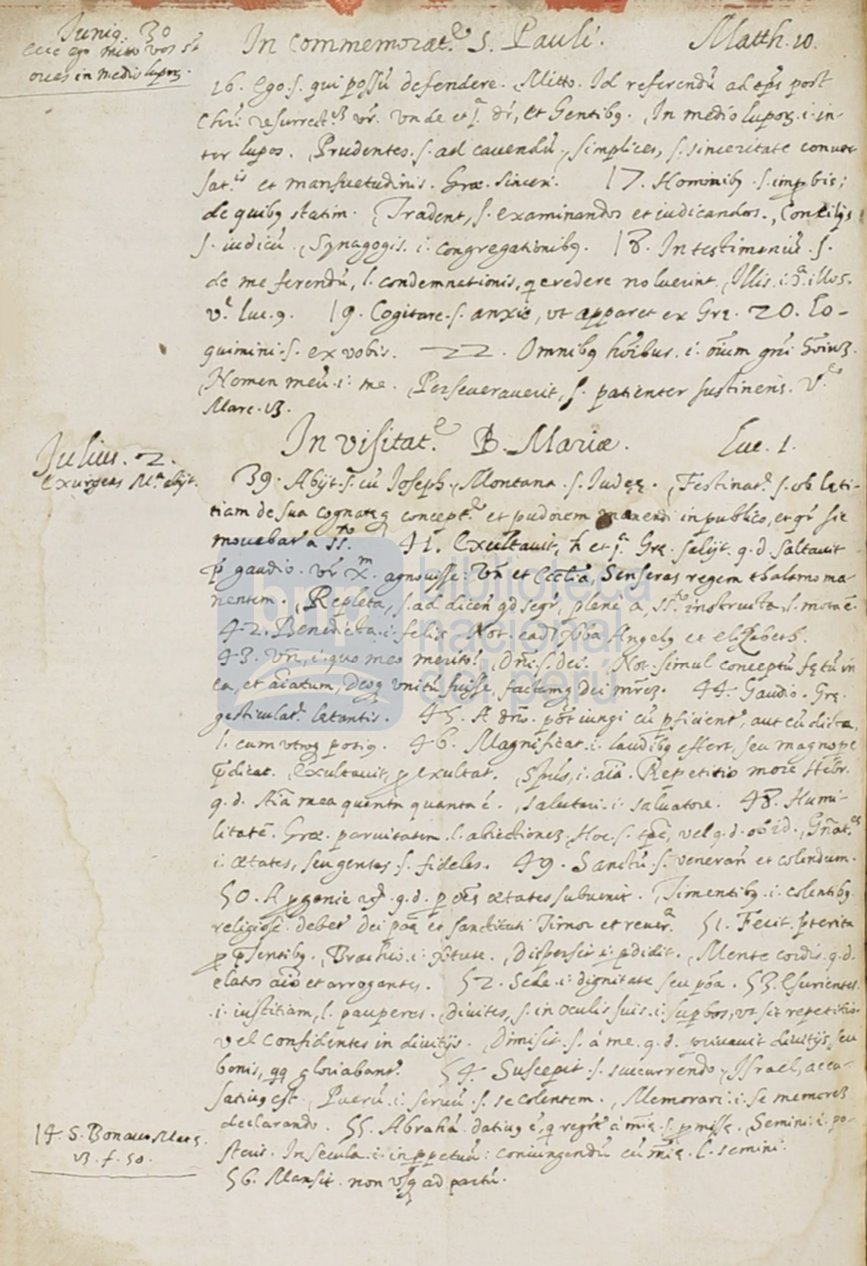 Juniq. 30
Ecce Ego mitto vos st
oues in medio lupoꝝ.
In commemorat.e S. Pauli. Matth. 10.
16. Ego .s. qui possũ defendere. Mitto. Id referendũ ad tp̃s post
Chri resurrect. vr̃. vnde et j. dr̃, et Gentibꝯ. In medio lupoꝝ .i. in-
ter lupos. Prudentes .s. ad cauendũ, simplices, s. sinceritate conuer
sat.is et mansuetudinis. Græ. sinceri. 17. Hominibꝯ .s. improbis;
de quibꝯ statim. Tradent, s. examinandos et iudicandos. Concilijs
s. iudicũ. Synagogis .i. congregationibꝯ. 18. In testimoniũ .s.
de me ferendũ, l. condemnationis, q credere noluerint. Illis .i. illos.
v.e luc. 9. 19. Cogitare .s. anxie, ut apparet ex Græ. 20. Lo-
quimini .s. ex vobis. 22. Omnibꝯ hoĩbus .i. oĩum gñi
Nomen meũ .i. me. Perseuerauerit, s. patienter sustinens. V.
Marc. 13.
Julius. 2.
Exurgens Mª abijt.
In visitat.e B. Mariæ. Luc. 1.
39. Abijt .s. cũ Joseph, Montana .s. Judeę. Festinat.e s. ob læti-
tiam de sua cognatę concept.e et pudorem manendi in publico, et qr̃ sic
mouebar a ss.to 41. Exultauit, h et j. Grę. salijt. q. d. saltauit
p̃ gaudio. vr̃ x.m agnouisse: Vñ et Ecclĩa, Senseras regem thalamo ma-
nentem. Repleta, s. ad dicen qd seqr̃, plene a ss.to instructa, s. mota ẽ.
42. Benedicta .i. felix. Not. eadẽ vba Angelꝯ et elizabeth.
43. Vñ, .i. quo meo merito! Dñi .s. dei. Not. simul conceptũ fętũ in
ea, et aĩatum, deoqꝫ vnitũ fuisse, factumqꝫ dei mr̃em. 44. Gaudio. Grę.
gesticulat.e lætantis. 45. A dño. põt iungi cũ pficient.r, aut cũ dicta,
l. cum vtroqꝫ potiꝯ. 46. Magnificat .i. laudibꝯ effert, seu magnope
p̃dicat. Exultauit, p exultat. Spũs, .i. aĩa. Repetitio more Hebr.
q. d. Aĩa mea quanta quanta ẽ. Salutari .i. saluatore. 48. Humi-
litatẽ. Græ. paruitatem l. abiectionem. Hoc .s. tpẽ, vel q. d. ob id. Gñat.es
.i. ætates, seu gentes s. fideles. 49. Sanctũ .s. venerañ et colendum.
50. A pgenie q. d. p oẽs ætates subuenit. Timentibꝯ .i. colentibꝯ
religiosi. debet.r dei et sanctitati Timor et reuer.a 51. Fecit. p̃terita
p p̃sentibꝯ. Brachio .i. virtute. Dispersit .i. pdidit. Mente cordis. q. d.
elatos aĩo et arrogantes. 52. Sede .i. dignitate seu põa. 53. Esurientes
.i. iustitiam, l. pauperes. diuites, s. in oculis suis .i. supbos, vt sit repetitio
vel confidentes in diuitijs. Dimisit .s. á me. q. d. priuauit diuitijs, seu
bonis, qꝫ gloriabant.r 54. Suscepit .s. succurrendo, Israel, accu-
satiuꝯ est. Puerũ .i. seruũ .s. se colentem. Memorari .i. se memorem
declarando. 55. Abrahã. datiuꝯ ẽ, q regr̃ á mĩę .s. pmissę. Semini .i. po-
steris. In sæcula .i. in ppetuũ: coniungendũ cũ mĩę l. semini.
56. Mansit. non vsqꝫ ad partũ.
14. S. Bonau. Marc.
13. f. 50.
biblioteca
nacional
del perú